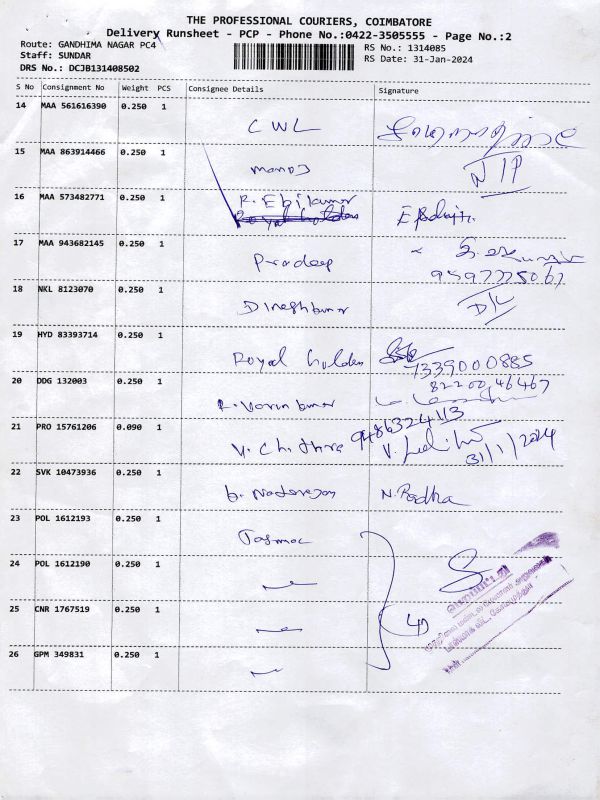 THE PROFESSIONAL COURIERS, COIMBATORE
Delivery Runsheet - PCP - Phone No.:0422-3505555 - Page No.:2
Route: GANDHIMA NAGAR PC4
RS No.: 1314085
Staff: SUNDAR
RS Date: 31-Jan-2024
DRS No.: DCJB131408502
S No Consignment No Weight PCS Consignee Details Signature
14 MAA 561616390 0.250 1 CWL
15 MAA 863914466 0.250 1 manoj
16 MAA 573482771 0.250 1 R. Ebikumar
17 MAA 943682145 0.250 1 Pradeep
9597775067
18 NKL 8123070 0.250 1 Dineshkumar
19 HYD 83393714 0.250 1 Royal holden 7339000885
20 DDG 132003 0.250 1 R. Varunkumar 82200,46467
21 PRO 15761206 0.090 1 V. Chithra 9486324113
31/1/2024
22 SVK 10473936 0.250 1 b. Nadarajan N. Radha
23 POL 1612193 0.250 1 Tasmac
24 POL 1612190 0.250 1
25 CNR 1767519 0.250 1 4
26 GPM 349831 0.250 1